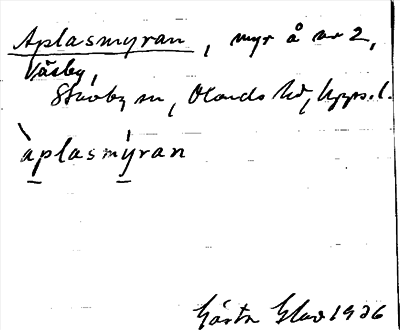 Aplasmyran, myr å nr 2,
Väsby,
Stavby sn, Olands hd, Upps. l.
àplasmýran
Gösta Elav 1936